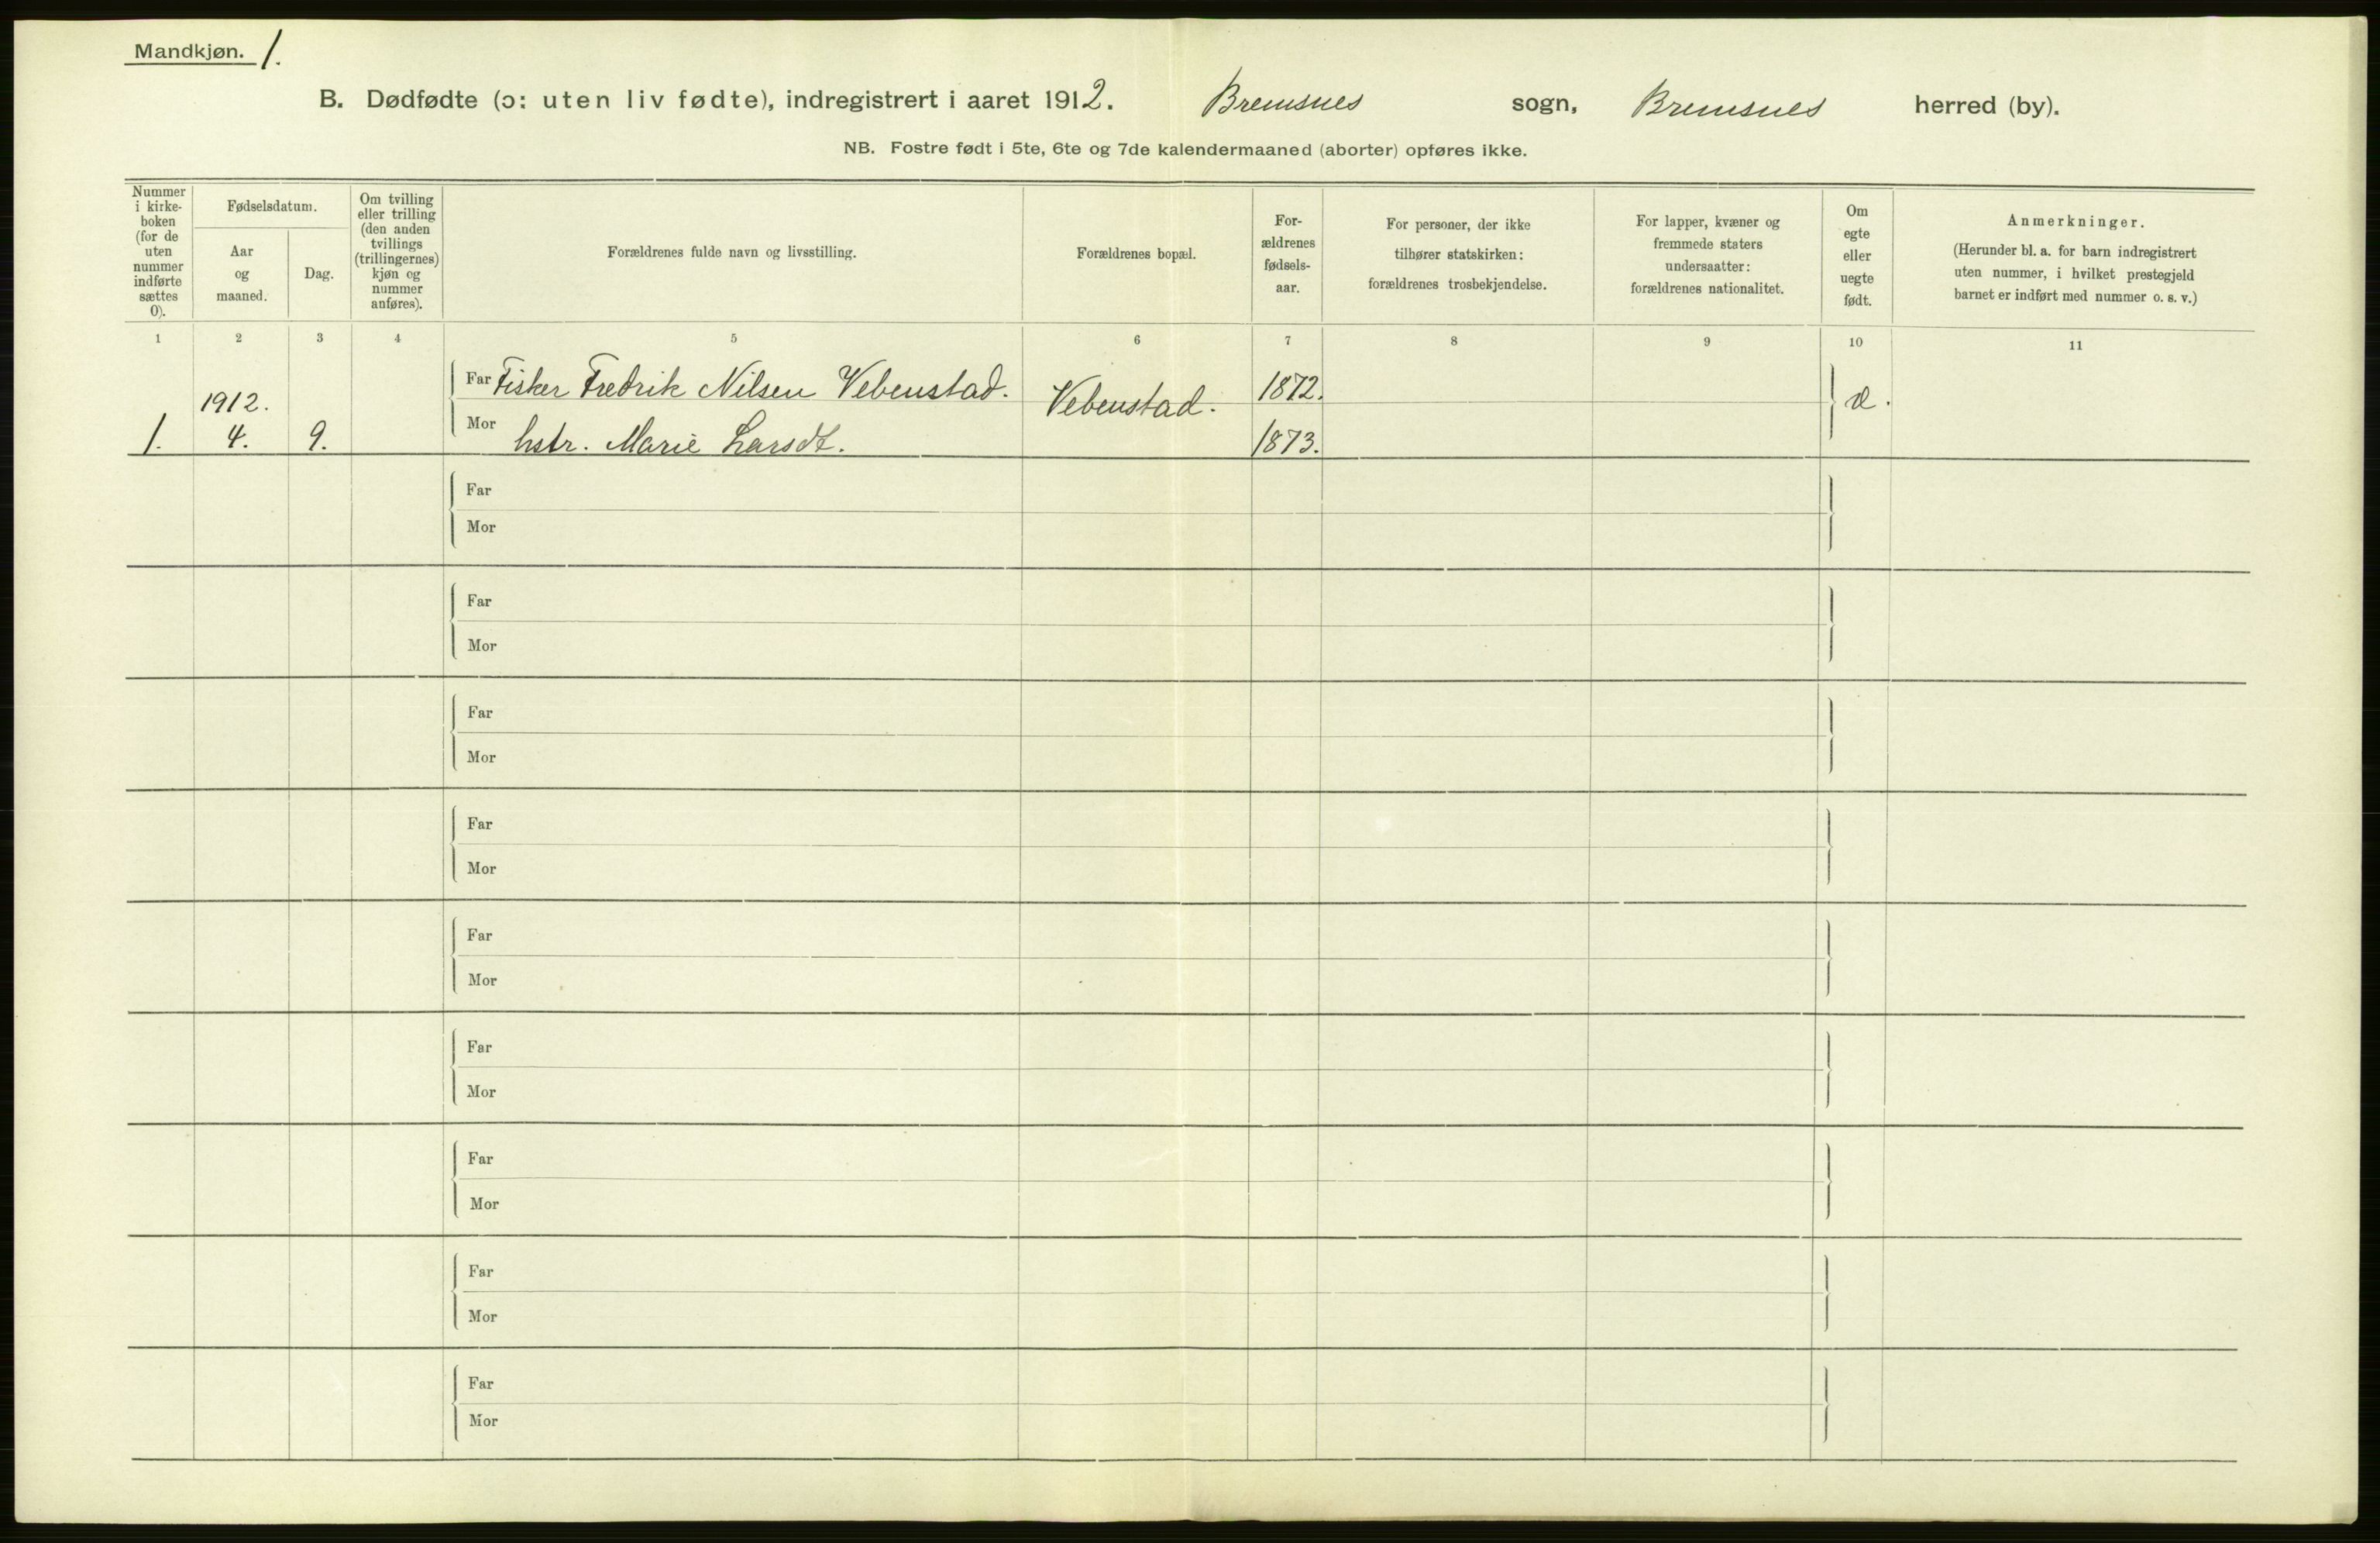 Mandkjøn. 1.
B. Dødfødte (ɔ: uten liv fødte), indregistrert i aaret 1912. Bremsnes sogn, Bremsnes herred (by).
NB. Fostre født i 5te, 6te og 7de kalendermaaned (aborter) opføres ikke.
Nummer
i kirke-
boken
(for de
uten
nummer
indførte
sættes
0).
Fødselsdatum.
Aar
og
maaned.
Dag.
Om tvilling
eller trilling
(den anden
tvillings
(trillingernes)
kjøn og
nummer
anføres).
Forældrenes fulde navn og livsstilling.
Forældrenes bopæl.
For-
ældrenes
fødsels-
aar.
For personer, der ikke
tilhører statskirken:
forældrenes trosbekjendelse.
For lapper, kvæner og
fremmede staters
undersaatter:
forældrenes nationalitet.
Om
egte
eller
uegte
født.
Anmerkninger.
(Herunder bl. a. for barn indregistrert
uten nummer, i hvilket prestegjeld
barnet er indført med nummer o. s. v.)
1 2 3 4 5 6 7 8 9 10 11
Far Fisker Fredrik Nilsen Vebenstad. 1872.
1912. Vebenstad. æ.
1. 4. 9. Mor hstr. Marie Larsdt. 1873.
Far
Mor
Far
Mor
Far
Mor
Far
Mor
Far
Mor
Far
Mor
Far
Mor
Far
Mor
Far
Mor